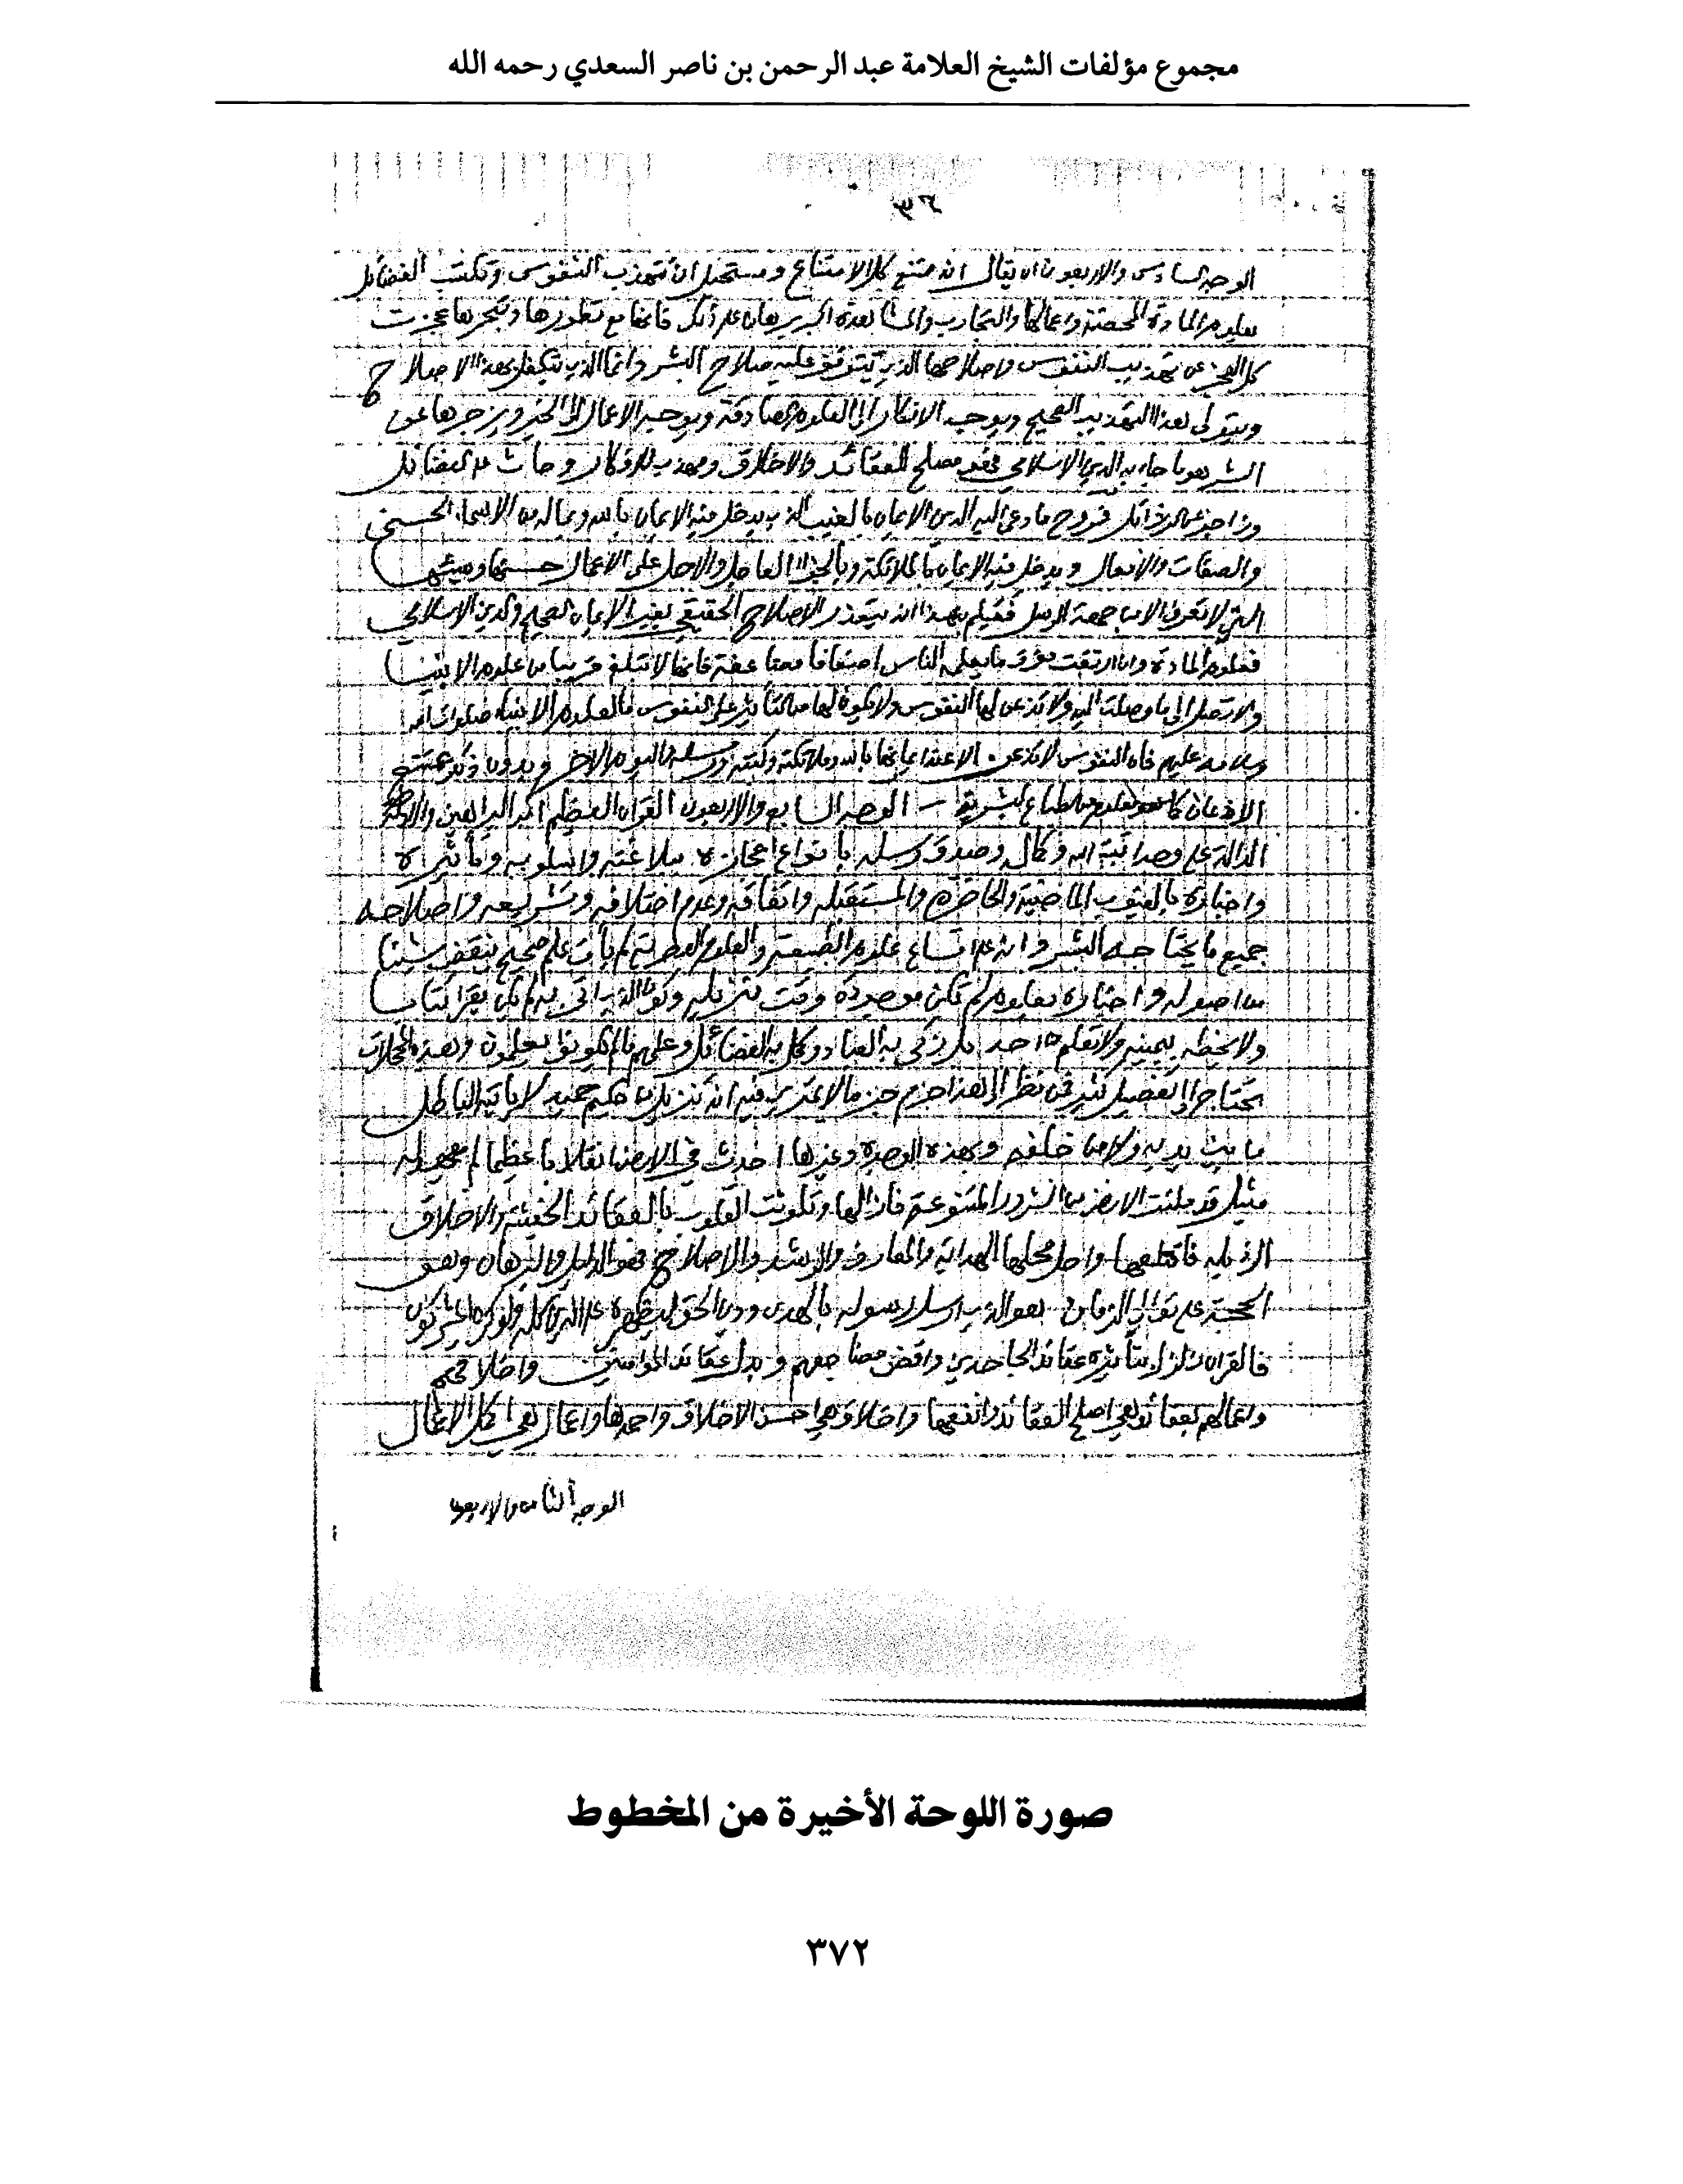 مجموع مؤلفات الشيخ العلامة عبد الرحمن بن ناصر السعدي رحمه الله
٣٣
الوجه السادس والاربعون ان يقال انه ممتنع كل الامتناع ومستحيل ان تتهذب النفوس وتكتسب الفضائل
بعلوم المادة المحضة واعمالها والتجارب والمشاهدة اكبر برهان على ذلك فانها مع تطورها وتبحرها عجزت
كل العجز عن تهذيب النفوس واصلاحها الذي يتوقف عليه صلاح البشر وانما الذي يتكفل بهذا الاصلاح
ويتولى هذا التهذيب الصحيح ويوجه الافكار الى العلوم الصادقة ويوجه الاعمال الى الخير ويزجرها عن
الشر هو ما جاء به الدين الاسلامي فهو مصلح للعقائد والاخلاق ومهذب للافكار وحاث على الفضائل
وزاجر عن الرذائل فروح ما دعى اليه الدين الايمان بالغيب الذي يدخل فيه الايمان بالله وبما له من الاسماء الحسنى
والصفات والافعال ويدخل فيه الايمان بالملائكة وبالجزاء العاجل والاجل على الاعمال حسنها وسيئها
التي لا تعرف الا من جهة الرسل فعلم بهذا انه يتعذر الاصلاح الحقيقي بغير الايمان الصحيح والدين الاسلامي
فعلوم المادة وان ارتقت فوق ما يعلم الناس اضعافا مضاعفة فانها لا تبلغ قريبا من علوم الانبياء
ولا تصل الى ما وصلت اليه ولا تذعن لها النفوس ولا يكون لها من التأثير على النفوس ما لعلوم الانبياء صلوات الله
وسلامه عليهم فان النفوس لا تذعن الا عند ايمانها بالله وملائكته وكتبه ورسله واليوم الاخر وبدون ذلك يمتنع
الاذعان كما هو معلوم من الطباع البشرية - الوجه السابع والاربعون القران العظيم اكبر البراهين والادلة
الدالة على وحدانية الله وكماله وصدق رسله بانواع اعجازه ببلاغته واسلوبه وتأثيره
واخباره بالغيوب الماضية والحاضرة والمستقبلة واتفاقه وعدم اختلافه وتشريعه واصلاحه
جميع ما يحتاجه البشر وانه على اتساع علوم الطبيعة والعلوم العصرية لم يأت علم صحيح ينقض شيئا
من اصوله واخباره بعلوم لم تكن موجودة وقت تنزيله وكون الذي اتى به لم يكن يقرأ كتاب
ولا يخطه بيمينه ولا تعلم من احد بل زكى به العباد وكمل به الفضائل وعلمهم ما لم يكونوا يعلمون وهذه المجملات
تحتاج الى تفصيل كثير فمن نظر الى هذا جزم جزما لا يمتري فيه انه تنزيل من حكيم حميد لا يأتيه الباطل
من بين يديه ولا من خلفه وبهذه الوجوه وغيرها احدث في الارض انقلابا عظيما لم يعهد له
مثيل قد ملئت الارض من الشرور المتنوعة فازالها وتلوثت القلوب بالعقائد الخبيثة والاخلاق
الرذيله فاقتلعها واحل محلها الهداية والمعارف والرشد والاصلاح فهو الدليل والبرهان وهو
الحجة على توالي الزمان هو الذي ارسل رسوله بالهدى ودين الحق ليظهره على الدين كله ولو كره المشركون
فالقران زلزل بتأثيره عقائد الجاحدين واقض مضاجعهم وبدل عقائد المؤمنين واخلاقهم
واعمالهم بعقائد هي اصلح العقائد وانفعها واخلاق هي احسن الاخلاق واحمدها واعمال هي اكمل الاعمال
الوجه الثامن والاربعون
صورة اللوحة الأخيرة من المخطوط
٣٧٢